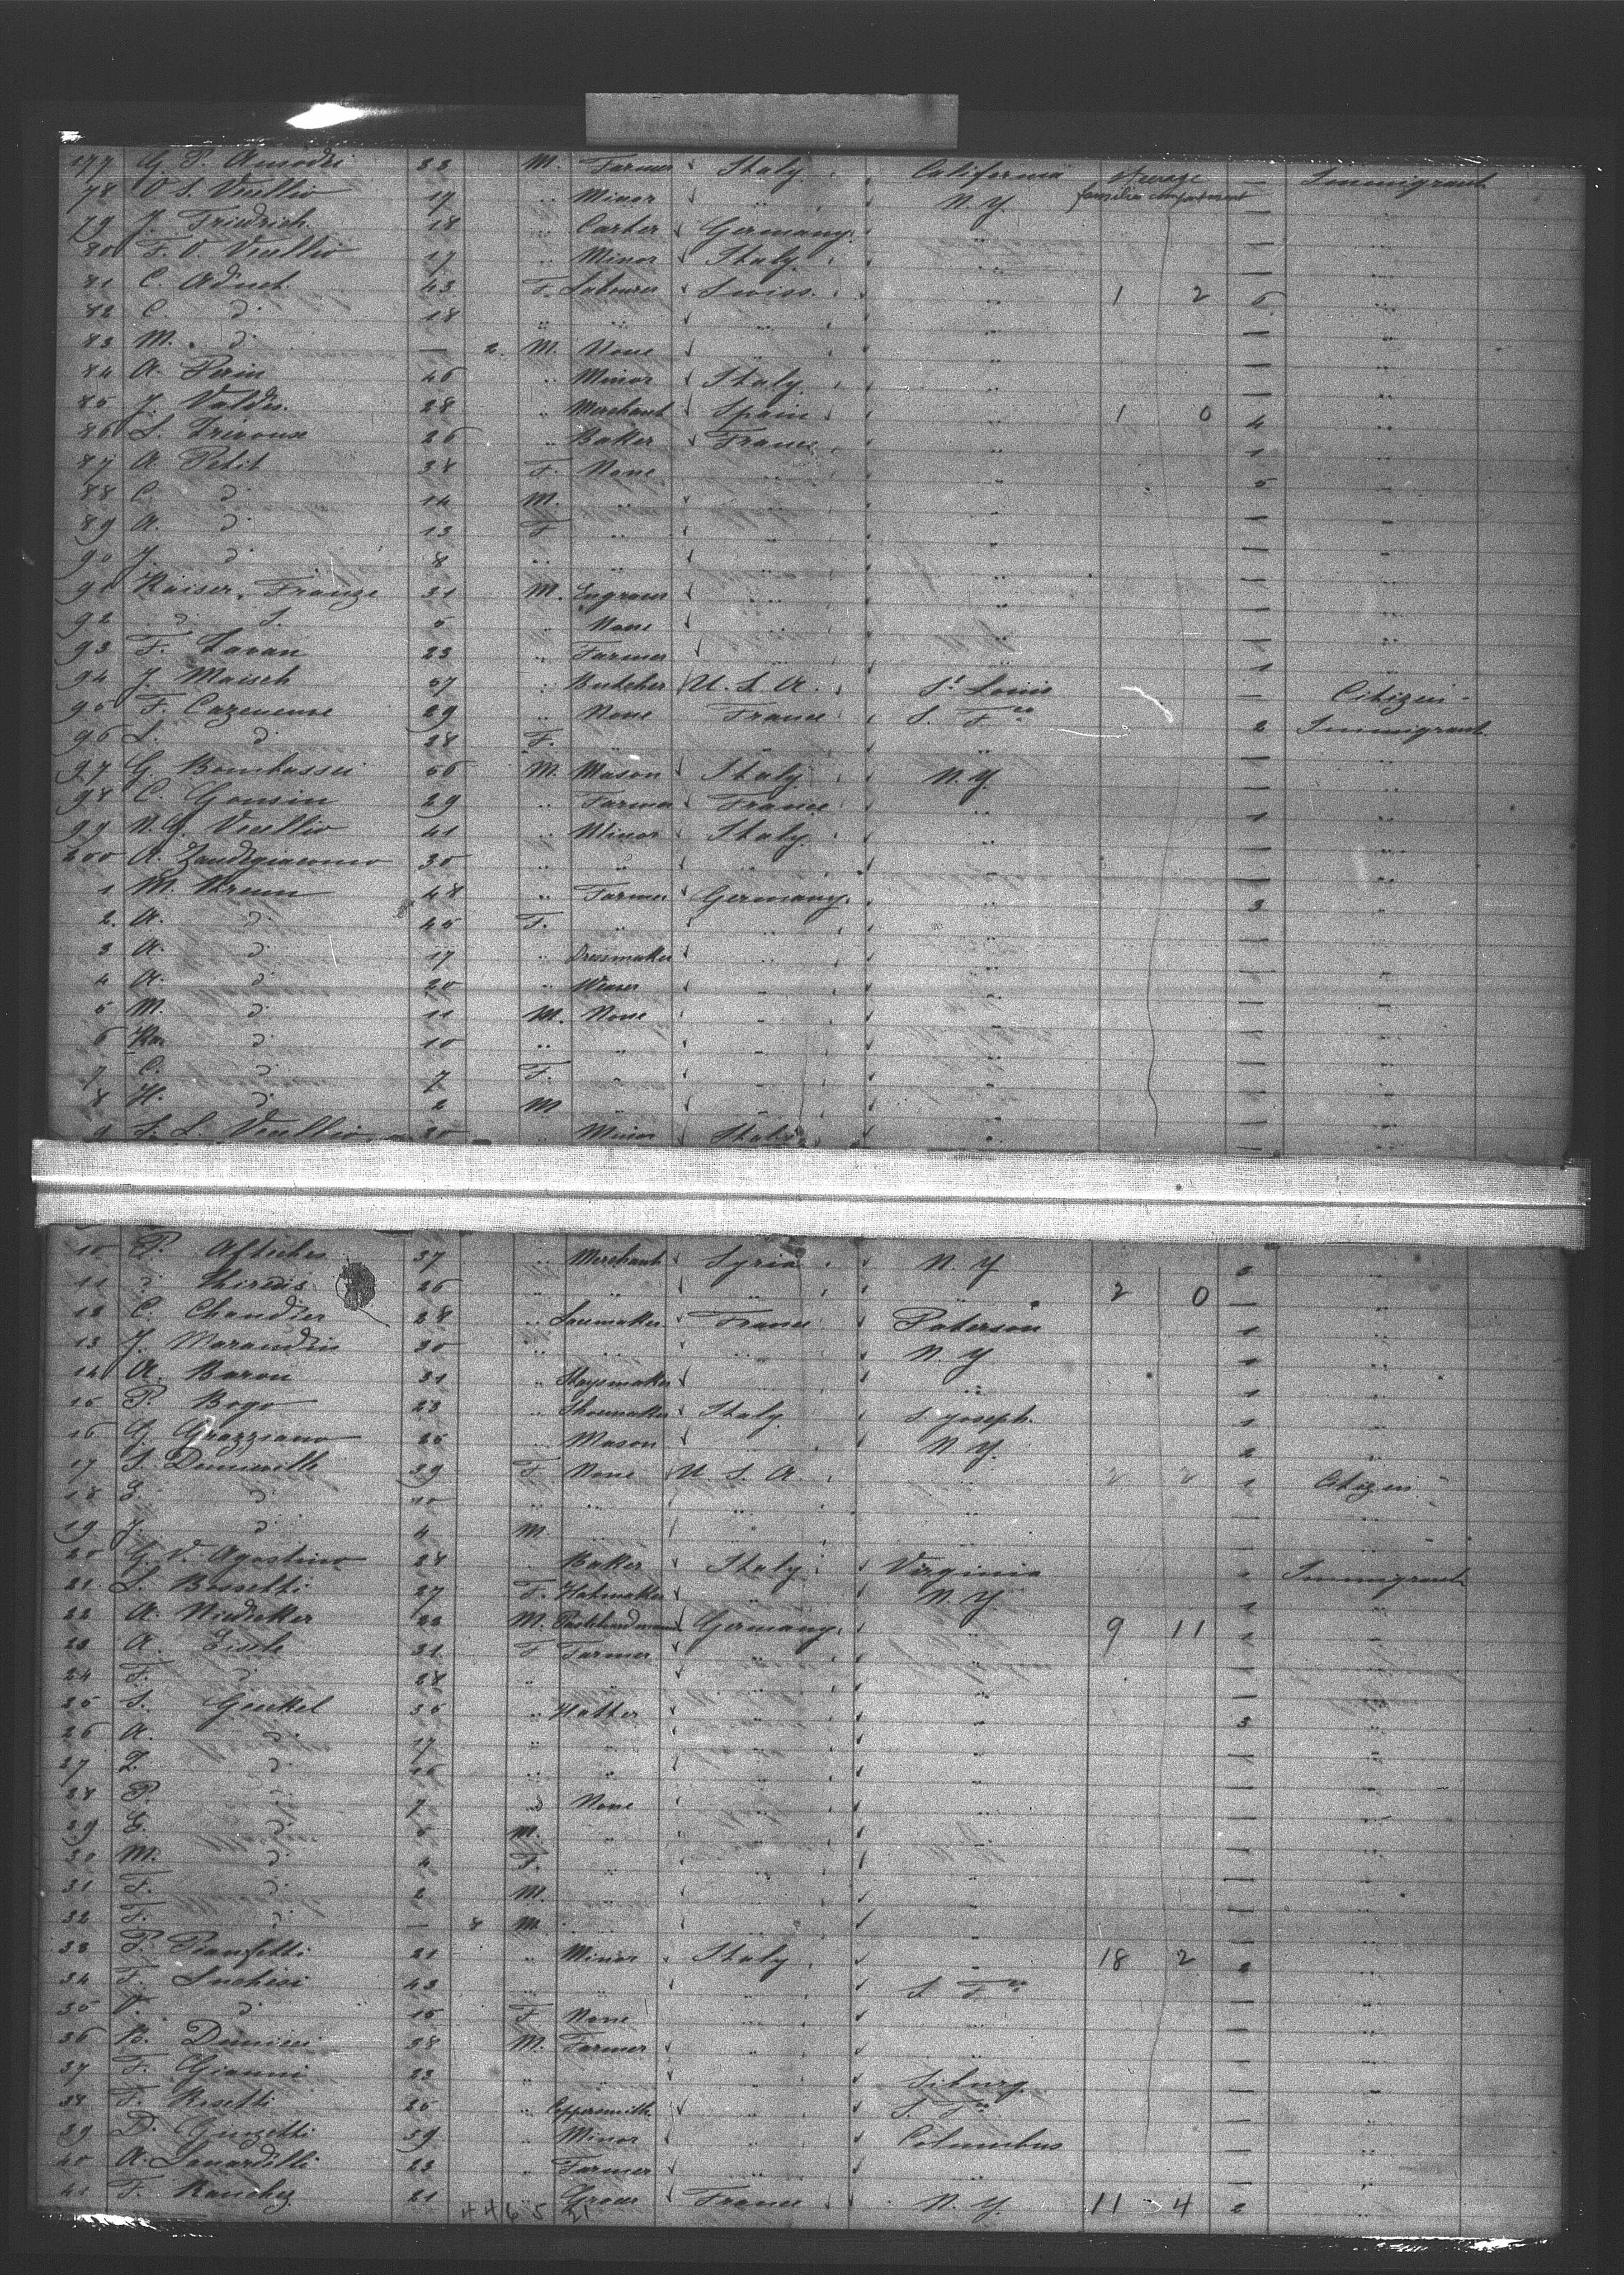 177 G. P. Amodei 33 M. Farmer Italy California steerage — Immigrant
78 O. S. Vecellio 17 " Minor " N. Y. families compartment — "
79 J. Friedrich 18 " Carter Germany " — "
80 F. O. Vecellio 17 " Minor Italy " — "
81 C. Adnet 43 F. Labourer Swiss " 1 2 6 "
82 C. d: 18 " " " " — "
83 M. d: — 2 M. None " " — "
84 A. Perin 46 " Minor Italy " — "
85 J. Valdes 28 " Merchant Spain " 1 0 4 "
86 26 " Baker France " 1 "
87 A. Petit 38 F. None " " 5 "
88 C. d: 14 M. " " " — "
89 A. d: 13 F " " " — "
90 J. d: 8 " " " " — "
91 Kaiser, Franze 31 M. Engraver " " — "
92 d: S. 5 " None " " — "
93 F. Lavan 23 " Farmer " " 1 "
94 J. Maisch 57 " Butcher U. S. A. St Louis — Citizen
95 F. Cazeneuve 29 " None France S. Fco 2 Immigrant
96 L. d: 28 F. " " " — "
97 G. Bombassei 56 M. Mason Italy N. Y. — "
98 C. Gonsin 29 " Farmer France " 1 "
99 N. G. Vecellio 41 " Minor Italy " — "
200 A. Zandegiacomo 30 " " " " — "
1 M. 48 " Farmer Germany " 3 "
2 A. d: 45 F. " " " — "
3 A. d: 17 " Dressmaker " " — "
4 A. d: 20 " Weaver " " — "
5 M. d: 11 M. None " " — "
6 d: 10 " " " " — "
7 C. d: 7 F. " " " — "
8 H. d: 2 M " " " — "
9 S. L. Vecellio 20 " Minor Italy " — "
10 P. Afticher 37 " Merchant Syria N. Y "
11 d: 26 " " " " 2 0 — "
12 C. Chandier 28 " Lacemaker France Paterson 1 "
13 J. Marandin 30 " " " N. Y 1 "
14 A. Baron 31 " Staysmaker " " 1 "
15 P. Bogo 23 " Shoemaker Italy S. Joseph. 1 "
16 G. Grazziano 25 " Mason " N. Y. 2 "
17 S. 39 F. None U. S. A. " 2 2 1 Citizen
18 d: 10 " " " " — "
19 J. d: 4 M. " " " — "
20 G. V. Agostino 24 " Baker Italy Virginia Immigrant
21 L. Bossetti 27 F. Hatmaker " N. Y 1 "
22 A. Niedecker 22 M. Germany " 9 11 1 "
23 A. Eisele 31 F Farmer " " "
24 F. d: 28 " " " " — "
25 S. Genkel 36 " Hatter " " 3 "
26 A. d: 17 " " " " — "
27 d: 16 " " " " — "
28 P. d: 7 " None " " — "
29 E. d: 5 M. " " " — "
30 M. d: 4 F. " " " — "
31 F. d: 2 M. " " " — "
32 F. d: — 8 M. " " " — "
33 P. Pianfetti 21 " Minor Italy " 18 2 2 "
34 F. Luchesi 43 " " " S. Fco — "
35 V. d: 15 F None " " — "
36 B. Dimini 38 M. Farmer " " — "
37 F. Gianni 23 " " " — "
38 F. Rosetti 25 " Coppersmith " S. Fco — "
39 D. Gunzetti 39 " Minor " Columbus — "
40 A. Lanardelli 23 " Farmer " " — "
41 F. Ranchez 21 " Grocer France N. Y. 11 4 2 "
4465 21